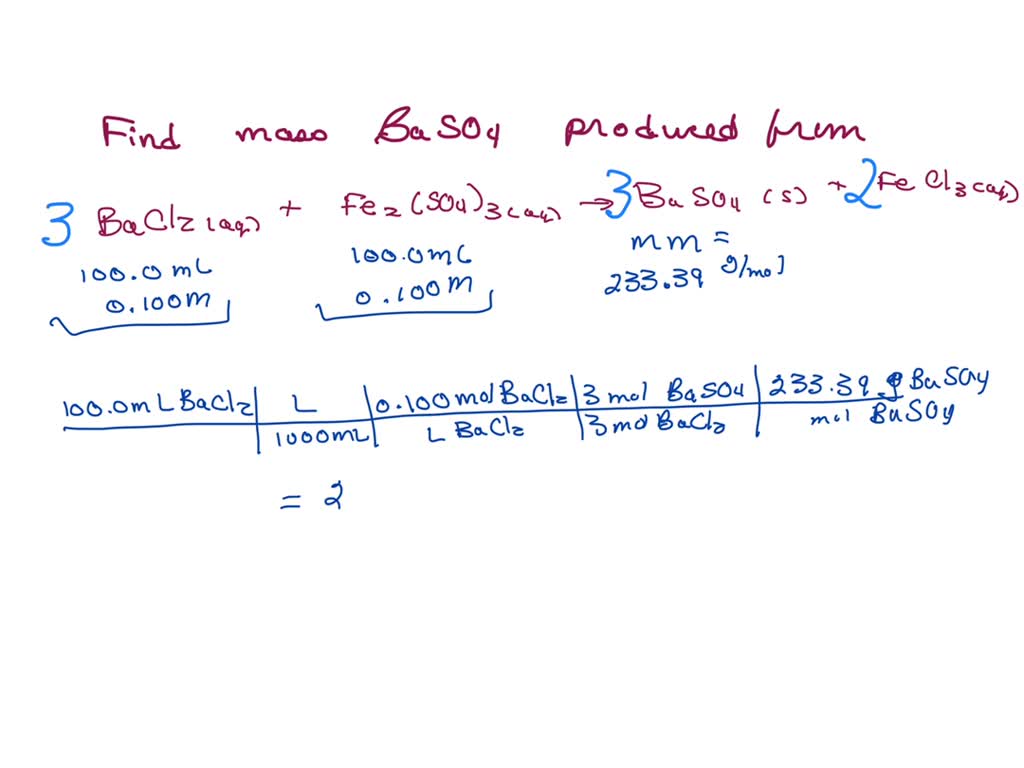 Find mass BaSO4 produced from
3 BaCl2 (aq) + Fe2(SO4)3(aq) → 3 BaSO4 (s) + 2 FeCl3(aq)
100.0mL 100.0mL mm =
0.100M 0.100M 233.39 g/mol
100.0mL BaCl2 | L | 0.100 mol BaCl2 | 3 mol BaSO4 | 233.39 g BaSO4
1000mL | L BaCl2 | 3 mol BaCl2 | mol BaSO4
= 2